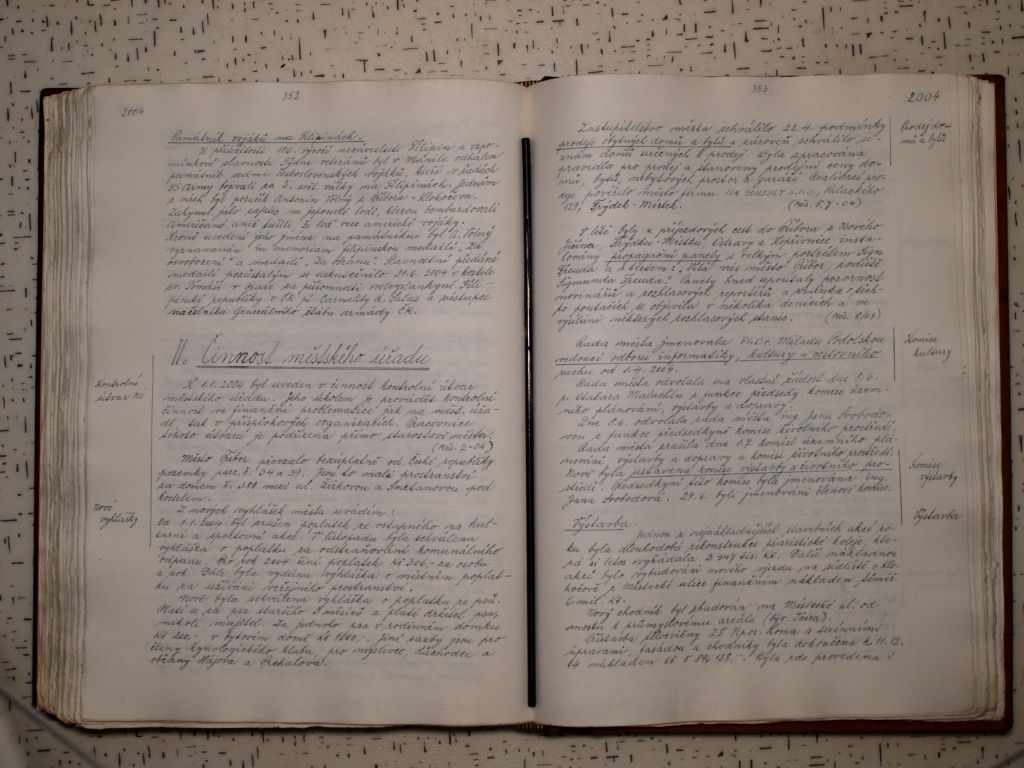 352
2004
Památník vojáků na Filipínách.
U příležitosti 106. výročí nezávislosti Filipín a vzpo-
mínkové slavnosti Týdne veteránů byl v Manile odhalen
památník sedmi československých vojáků, kteří v řadách
US Army bojovali za 2. svět. války na Filipínách. Jedním
z nich byl poručík Antonín Volný z Příbora - Klokočova.
Zahynul jako zajatec na japonské lodi, kterou bombardovali
Američané aniž tušili, že loď veze americké vojáky.
Kromě uvedení jeho jména na památníku byl A. Volný
vyznamenán in memoriam filipínskou medailí „Za
osvobození" a medailí „Za obranu". Slavnostní předání
medailí pozůstalým se uskutečnilo 21.6. 2004 v kostele
sv. Tomáše v Praze za přítomnosti velvyslankyně Fili-
pínské republiky v ČR pí Carmelity R. Salas a zástupce
náčelníka Generálního štábu armády ČR.
II. Činnost městského úřadu
Kontrolní
útvar MÚ
K 1.1. 2004 byl uveden v činnost kontrolní útvar
městského úřadu. Jeho úkolem je provádět kontrolní
činnost ve finanční problematice jak na měst. úřa-
dě, tak v příspěvkových organizacích. Pracovnice
tohoto útvaru je podřízena přímo starostovi města.
(Měs. 2-04)
Město Příbor převzalo bezúplatně od České republiky
pozemky parc. č. 34 a 39. Jsou to malá prostranství
za domem č. 388 mezi ul. Žižkovou a Smetanovou pod
kostelem.
Nové
vyhlášky
Z nových vyhlášek města uvádím:
Od 1.1. 2004 byl zrušen poplatek ze vstupného na kul-
turní a sportovní akce. V listopadu byla schválena
vyhláška o poplatku za odstraňování komunálního
odpadu. Pro rok 2004 činí poplatek Kč 306,- za osobu
a rok. Dále byla vydána vyhláška o místním poplat-
ku za užívání veřejného prostranství.
Nově byla schválena vyhláška o poplatku ze psů.
Platí se za psa staršího 3 měsíců a platí držitel psa,
nikoli majitel. Za jednoho psa v rodinném domku
Kč 200,- v bytovém domě Kč 1000,-. Jiné sazby jsou pro
členy kynologického klubu, pro myslivce, důchodce a
občany Hájova a Prchalova.
353
2004
Prodej do-
mů a bytů
Zastupitelstvo města schválilo 22.4. podmínky
prodeje obytných domů a bytů a zároveň schválilo se-
znam domů určených k prodeji. Byla zpracována
pravidla pro prodej a stanoveny prodejní ceny do-
mů, bytů, nebytových prostor a garáží. Realizací pro-
deje pověřilo město firmu ISA CONSULT s.r.o., Palackého
129, Frýdek-Místek. (Měs. 5,7-04)
V létě byly u příjezdových cest do Příbora z Nového
Jičína, Frýdku-Místku, Ostravy a Kopřivnice insta-
lovány propagační panely s velkým portrétem Sigm.
Freuda a s textem: „Vítá vás město Příbor, rodiště
Sigmunda Freuda". Panely hned upoutaly pozornost
novinářů a rozhlasových reportérů a zmínka o těch-
to poutačích se objevila v několika denících a ve
vysílání některých rozhlasových stanic. (Měs. 8/04)
Komise
kultury
Rada města jmenovala PhDr. Miladu Podolskou
vedoucí odboru informatiky, kultury a cestovního
ruchu od 1.4. 2004.
Rada města odvolala na vlastní žádost dne 8.6.
p. Otakara Maluchu z funkce předsedy komise územ-
ního plánování, výstavby a dopravy.
Dne 8.6. odvolala rada města ing. Janu Svobodo-
vou z funkce předsedkyně komise životního prostředí.
Rada města zrušila dne 1.7. komisi územního plá-
nování výstavby a dopravy a komisi životního prostředí.
Komise
výstavby
Nově byla ustavena komise výstavby a životního pro-
středí. Předsedkyní této komise byla jmenována ing.
Jana Svobodová. 29.6. byli jmenováni členové komise.
Výstavba
Výstavba.
Jednou z nejnákladnějších stavebních akcí ro-
ku byla dlouhodobá rekonstrukce piaristické koleje, kte-
rá si letos vyžádala 3 947 tis. Kč. Další nákladnou
akcí bylo vybudování nového vjezdu na sídliště v Klo-
kočově z Místecké ulice finančním nákladem téměř
6 mil. Kč.
Nový chodník byl zbudován na Místecké ul. od
mostu k průmyslovému areálu (býv. Tatra).
Přístavba tělocvičny ZŠ Npor. Loma s terénními
úpravami, fasádou a chodníky byla dokončena k 11.12.
04 nákladem Kč 5 896 138,-. Byla zde provedena i